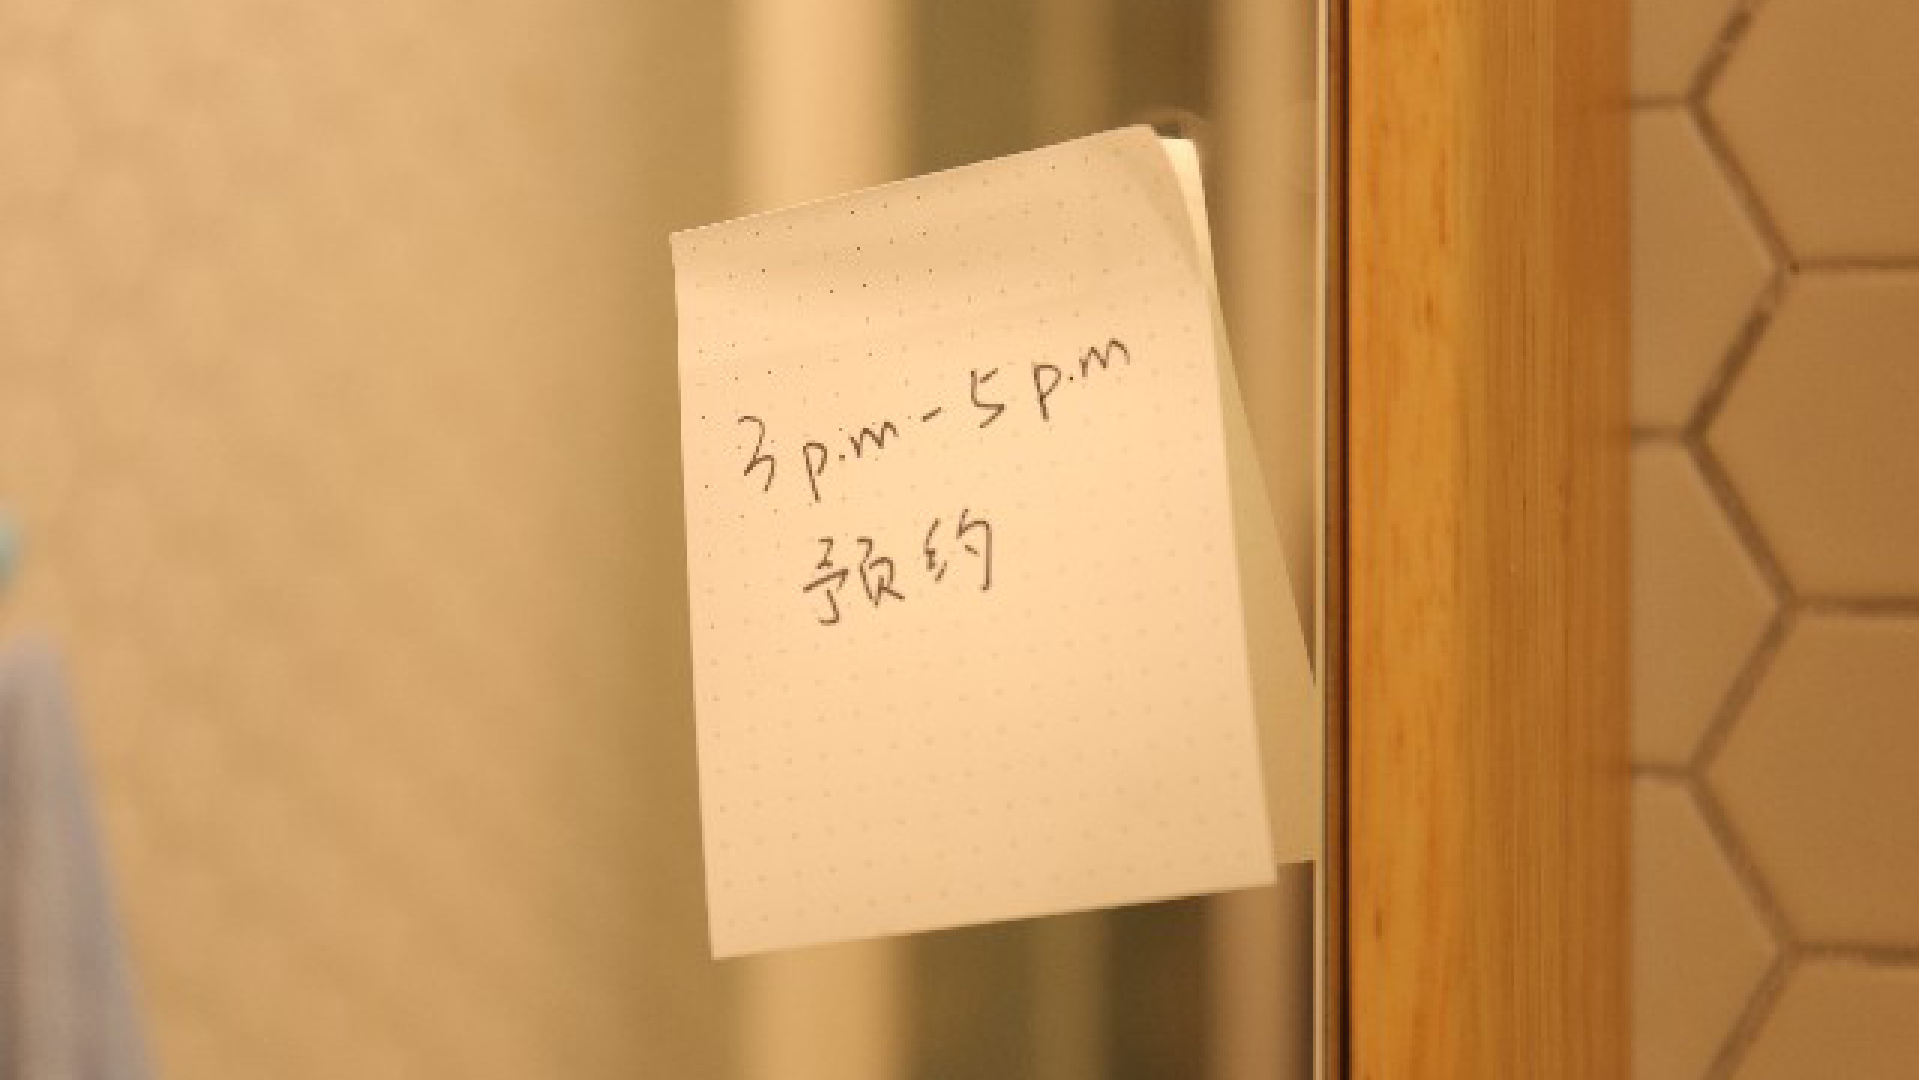 3 p.m - 5 p.m
预约